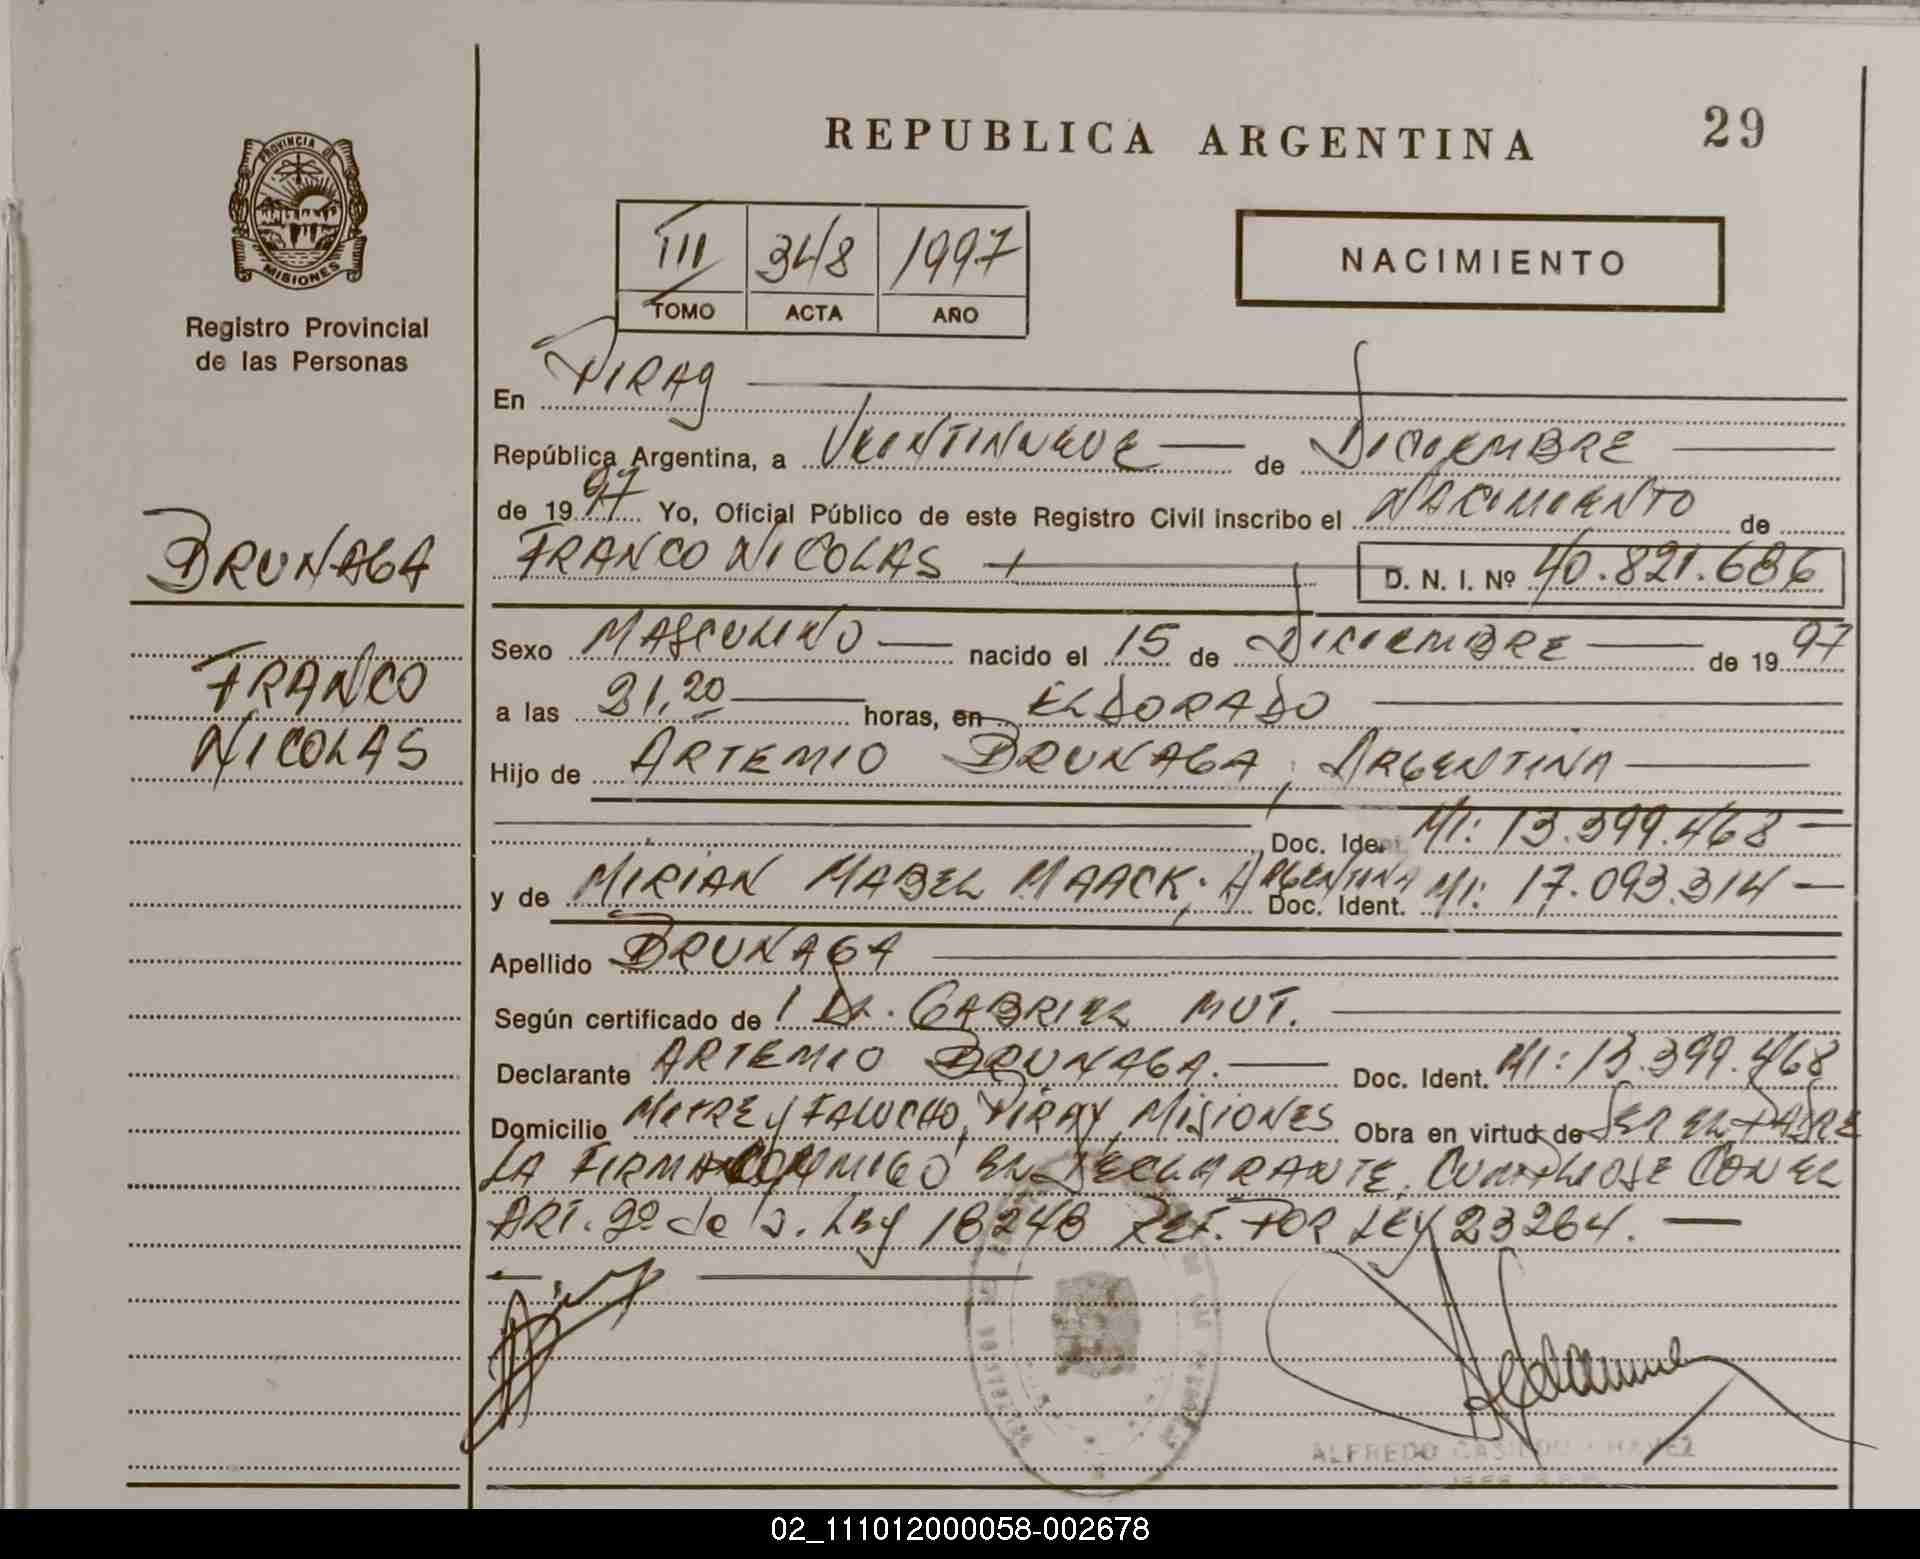 REPUBLICA ARGENTINA
29
PROVINCIA DE
MISIONES
Registro Provincial
de las Personas
III 348 1997
TOMO ACTA AÑO
NACIMIENTO
En Piray
República Argentina, a Veintinueve de Diciembre
de 1997 Yo, Oficial Público de este Registro Civil inscribo el Nacimiento de
BRUNAGA
FRANCO NICOLAS D. N. I. Nº 40.821.686
FRANCO
NICOLAS
Sexo MASCULINO nacido el 15 de DICIEMBRE de 1997
a las 21,20 horas, en ELDORADO
Hijo de ARTEMIO BRUNAGA, ARGENTINA
Doc. Ident. MI: 13.399.468
y de MIRIAN MABEL MAACK, ARGENTINA Doc. Ident. MI: 17.093.314
Apellido BRUNAGA
Según certificado de / Dr. GABRIEL MUT.
Declarante ARTEMIO BRUNAGA. Doc. Ident. MI: 13.399.468
Domicilio MITRE y FALUCHO, PIRAY, MISIONES Obra en virtud de SER EL PADRE
LA FIRMA CONMIGO EL DECLARANTE. CUMPLIOSE CON EL
ART. 2º de la Ley 18248 REF. POR LEY 23264.
ALFREDO CHAVEZ
02_111012000058-002678